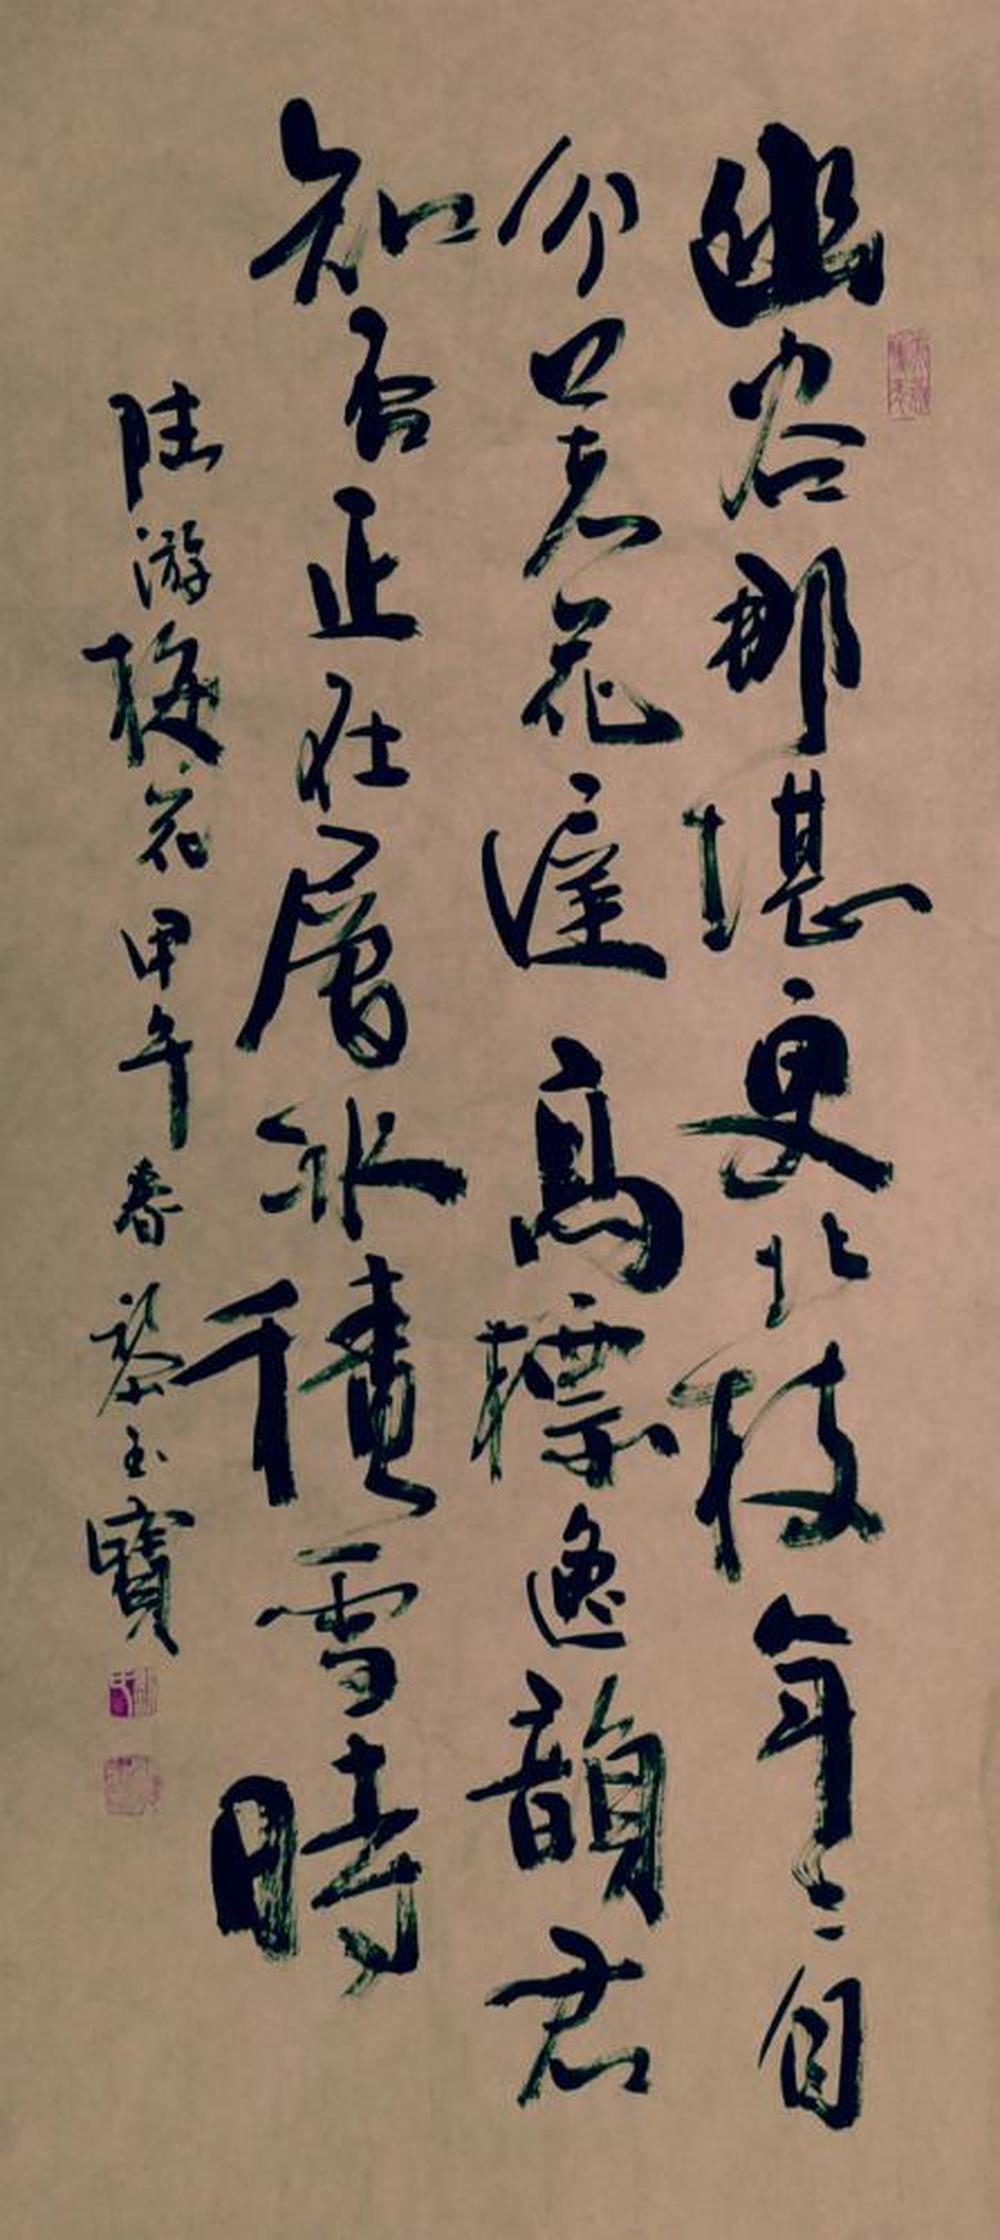 幽谷那堪更北枝年〻自
分著花遲高標逸韻君
知否正在層冰積雪時
陸游梅花甲午春黎玉寶